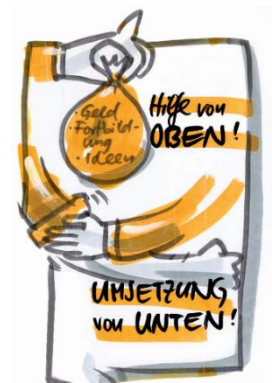 · Geld
· Fortbild-
ung
· Ideen
Hilfe von
OBEN!
UMSETZUNG
von UNTEN!